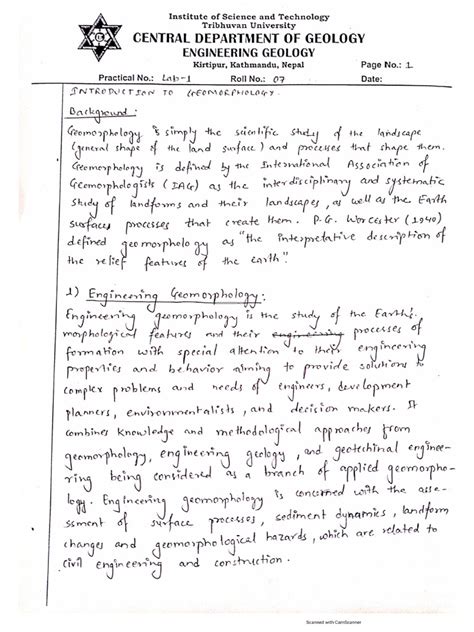 Institute of Science and Technology
Tribhuvan University
CENTRAL DEPARTMENT OF GEOLOGY
ENGINEERING GEOLOGY
Kirtipur, Kathmandu, Nepal
Page No.: 1
Practical No.: Lab-1 Roll No.: 07 Date:
INTRODUCTION TO GEOMORPHOLOGY.
Background:
Geomorphology is simply the scientific study of the landscape
(general shape of the land surface) and processes that shape them.
Geomorphology is defined by the International Association of
Geomorphologists (IAG) as the interdisciplinary and systematic
study of landforms and their landscapes, as well as the Earth
surfaces processes that create them. P.G. Worcester (1940)
defined geomorphology as "the interpretative description of
the relief features of the earth".
1) Engineering Geomorphology:
Engineering geomorphology is the study of the Earth's
morphological features and their engineering processes of
formation with special attention to their engineering
properties and behavior aiming to provide solutions to
complex problems and needs of engineers, development
planners, environmentalists, and decision makers. It
combines knowledge and methodological approaches from
geomorphology, engineering geology, and geotechinal enginee-
ring being considered as a branch of applied geomorpho-
logy. Engineering geomorphology is concerned with the asse-
ssment of surface processes, sediment dynamics, landform
changes and geomorphological hazards, which are related to
civil engineering and construction.
Scanned with CamScanner